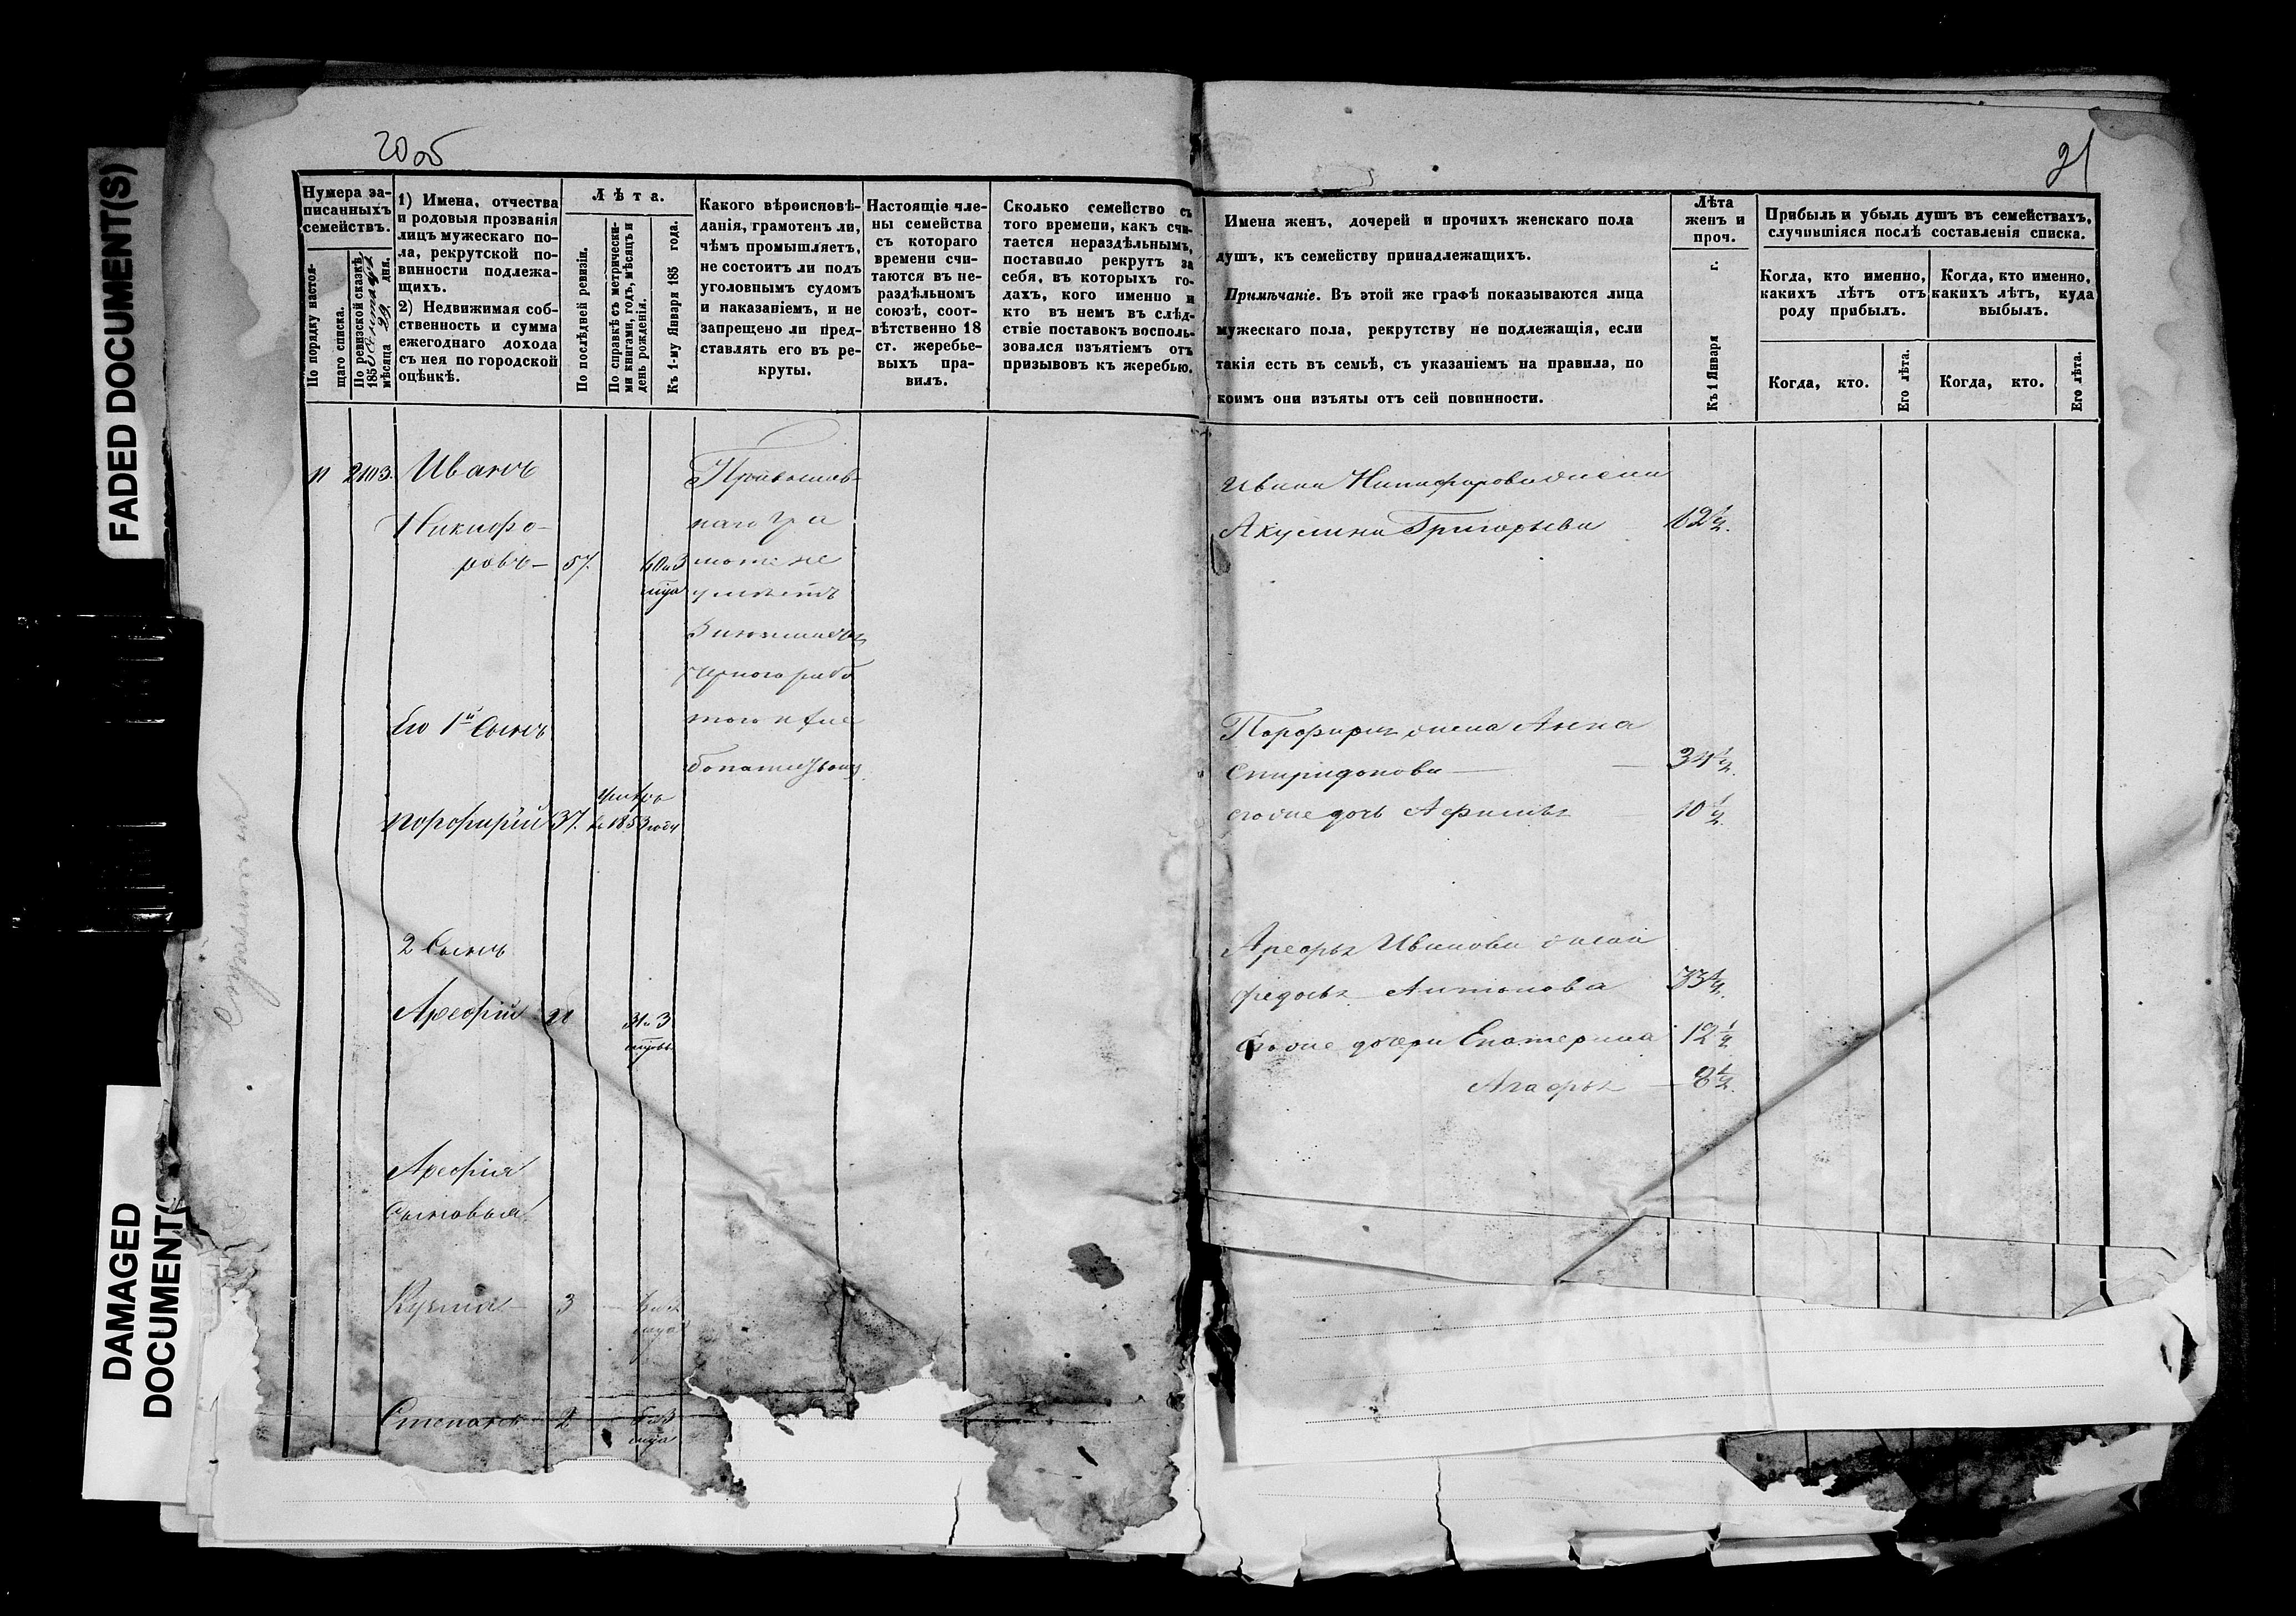 FADED DOCUMENT(S)
DAMAGED
DOCUMENT(
20 об
21
Нумера за-
писанныхъ
семействъ.
По порядку настоя-
щаго списка.
По ревизской сказкѣ
185
мѣсяца 29 дня.
1) Имена, отчества
и родовыя прозванія
лицъ мужескаго по-
ла, рекрутской по-
винности подлежа-
щихъ.
2) Недвижимая соб-
ственность и сумма
ежегоднаго дохода
съ нея по городской
оцѣнкѣ.
Лѣта.
По послѣдней ревизіи.
По справкѣ съ метрически-
ми книгами, годъ, мѣсяцъ и
день рожденія.
Къ 1-му Января 185 года.
Какого вѣроисповѣ-
данія, грамотенъ ли,
чѣмъ промышляетъ,
не состоитъ ли подъ
уголовнымъ судомъ
и наказаніемъ, и не
запрещено ли пред-
ставлять его въ ре-
круты.
Настоящіе чле-
ны семейства
съ котораго
времени счи-
таются въ не-
раздѣльномъ
союзѣ, соот-
вѣтственно 18
ст. жеребье-
выхъ пра-
вилъ.
Сколько семейство съ
того времени, какъ счи-
тается нераздѣльнымъ,
поставило рекрутъ за
себя, въ которыхъ го-
дахъ, кого именно и
кто въ немъ въ слѣд-
ствіе поставокъ восполь-
зовался изъятіемъ отъ
призывовъ къ жеребью.
Имена женъ, дочерей и прочихъ женскаго пола
душъ, къ семейству принадлежащихъ.
Примѣчаніе. Въ этой же графѣ показываются лица
мужескаго пола, рекрутству не подлежащія, если
такія есть въ семьѣ, съ указаніемъ на правила, по
коимъ они изъяты отъ сей повинности.
Лѣта
женъ и
проч.
Къ 1 Января г.
Прибыль и убыль душъ въ семействахъ,
случившіяся послѣ составленія списка.
Когда, кто именно,
какихъ лѣтъ отъ
роду прибылъ.
Когда, кто именно,
какихъ лѣтъ, куда
выбылъ.
Когда, кто.
Его лѣта.
Когда, кто.
Его лѣта.
11 2103. Иванъ
Никифо-
ровъ — 57.
Православ-
наго гра
моте не
умѣетъ
Его 1й Сынъ
порфирій 37. въ 1853 годѣ
2 Сынъ
Арефій 26 31 и 3
Арефія
сыновья
Кузьма — 3
Степанъ — 2
Ивана Никифорова жена
Акулина Григорьева
Порфирія жена Анна
Спиридонова — 34 1/2.
его же дочь Афимья 10 1/2.
Арефья Иванова жена
Федосья Антонова 33 1/2.
Его же дочери Екатерина 12 1/2
Агафья — 8 1/2.